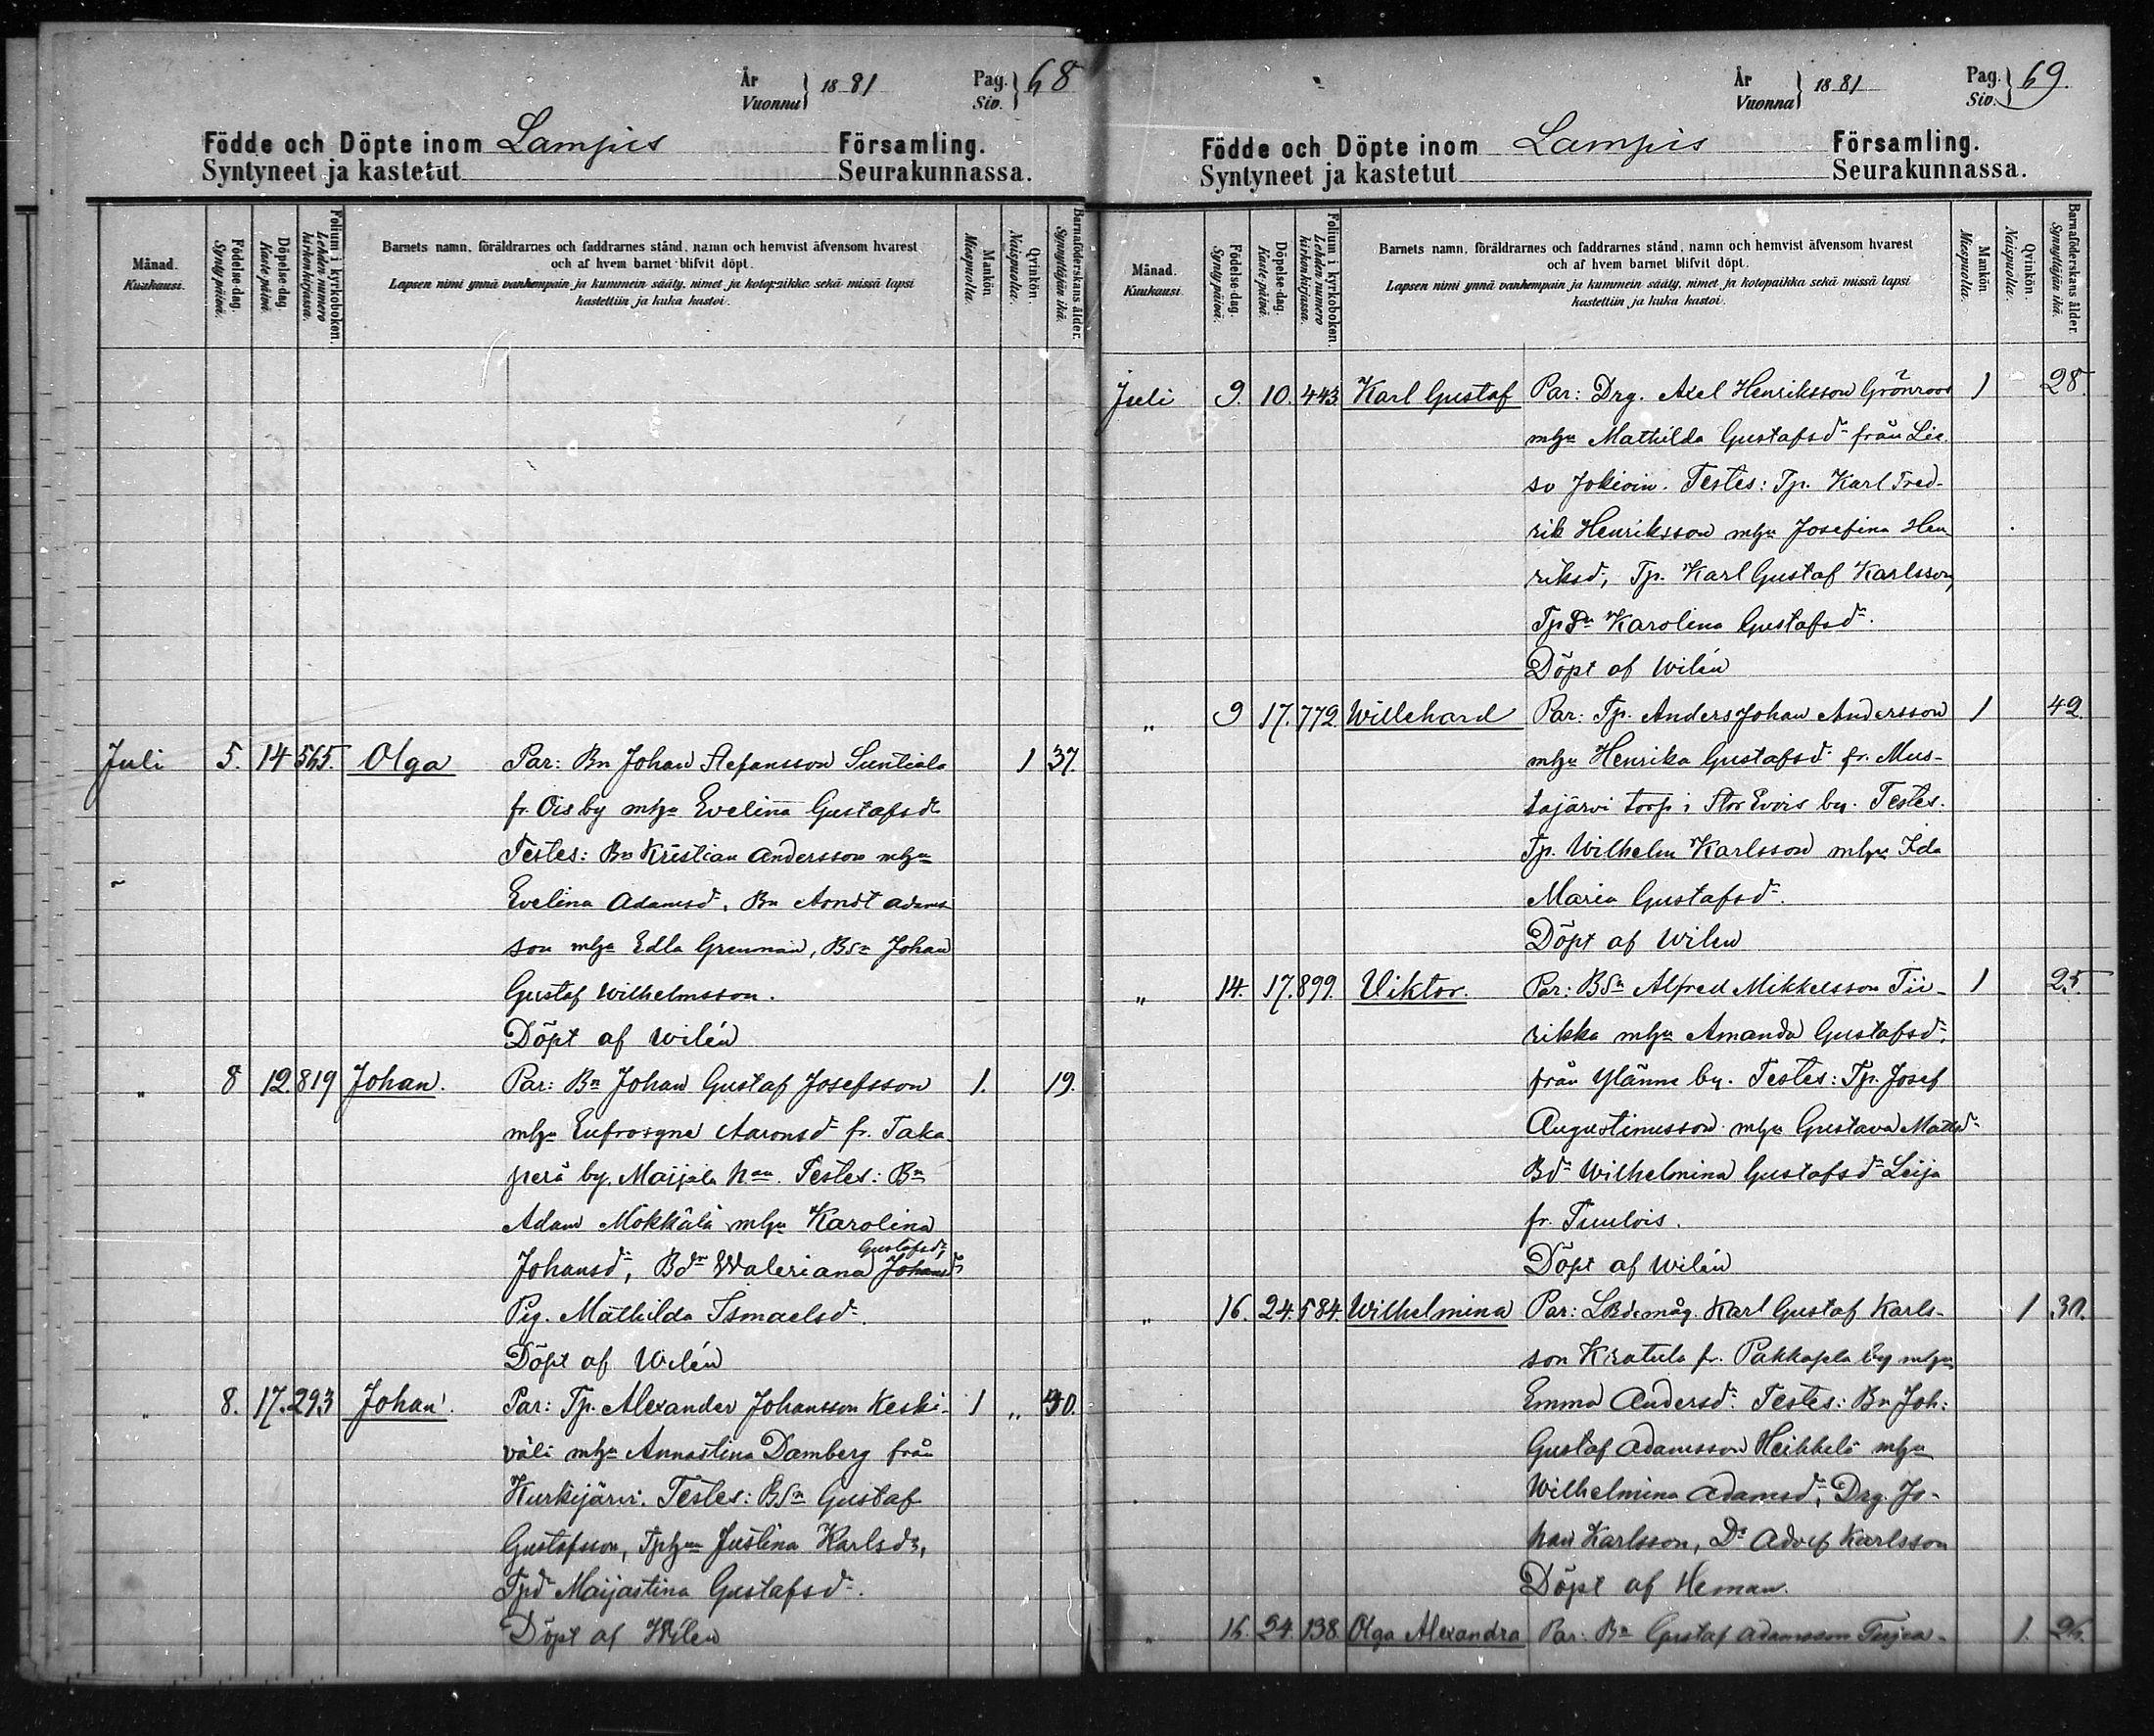 År
Vuonna } 1881
Pag.
Siv. } 68
Födde och Döpte inom Lampis Församling.
Syntyneet ja kastetut Seurakunnassa.
Månad.
Kuukausi.
Födelse-dag.
Syntypäivä.
Döpelse-dag.
Kastepäivä.
Folium i kyrkoboken.
Lehden numero
kirkonkirjassa.
Barnets namn, föräldrarnes och faddrarnes stånd, namn och hemvist äfvensom hvarest
och af hvem barnet blifvit döpt.
Lapsen nimi ynnä vanhempain ja kummein sääty, nimet ja kotopaikka sekä missä lapsi
kastettiin ja kuka kastoi.
Mankön.
Miespuolia.
Qvinkön.
Naispuolia.
Barnaföderskans ålder.
Synnyttäjän ikä.
Juli 5. 14 565. Olga Par: Bn Johan Stefansson Suntiala 1 37.
fr. Ois by mhu Evelina Gustafsdr
Testes: Bn Kristian Andersson mhu
Evelina Adamsdr, Bn Arndt Adams
son mhu Edla Grenman, BSn Johan
Gustaf Wilhelmsson.
Döpt af Wilén
„ 8 12. 819 Johan. Par: Bn Johan Gustaf Josefsson 1. 19.
mhu Eufrosyne Aaronsdr fr. Taka
perä by. Maijala hn. Testes: Bn
Adam Mokkala mhu Karolina
Gustafsdr,
Johansdr, Bdr Waleriana Johansdr
Pig. Mathilda Ismaelsdr.
Döpt af Wilén
„ 8. 17. 293 Johan. Par: Tp. Alexander Johansson Keski- 1 „ 40.
väli mhu Annastina Damberg från
Kurkijärvi. Testes: BSn Gustaf
Gustafsson, Tphu Justina Karlsdr,
Tpdr Maijastina Gustafsdr.
Döpt af Wilén
År
Vuonna } 1881
Pag.
Siv. } 69.
Födde och Döpte inom Lampis Församling.
Syntyneet ja kastetut Seurakunnassa.
Månad.
Kuukausi.
Födelse-dag.
Syntypäivä.
Döpelse-dag.
Kastepäivä.
Folium i kyrkoboken.
Lehden numero
kirkonkirjassa.
Barnets namn, föräldrarnes och faddrarnes stånd, namn och hemvist äfvensom hvarest
och af hvem barnet blifvit döpt.
Lapsen nimi ynnä vanhempain ja kummein sääty, nimet ja kotopaikka sekä missä lapsi
kastettiin ja kuka kastoi.
Mankön.
Miespuolia.
Qvinkön.
Naispuolia.
Barnaföderskans ålder.
Synnyttäjän ikä.
Juli 9. 10. 443. Karl Gustaf Par: Drg. Axel Henriksson Grönroos 1 28.
mhu Mathilda Gustafsdr från Lie
so Jokioin. Testes: Tp. Karl Fred-
rik Henriksson mhu Josefina Hen
riksdr, Tp. Karl Gustaf Karlsson,
TpDr Karolina Gustafsdr.
Döpt af Wilén
„ 9 17. 772. Willehard Par: Tp. Anders Johan Andersson 1 42.
mhu Henrika Gustafsdr fr. Mus-
tajärvi torp i Stor Evois by. Testes.
Tp. Wilhelm Karlsson mhu Ida
Maria Gustafsdr.
Döpt af Wilén
„ 14. 17. 899. Viktor. Par: BSn Alfred Mikkelsson Tii- 1 25.
rikka mhu Amanda Gustafsdr,
från Ylänne by. Testes: Tp. Josef
Augustinusson mhu Gustava Mattsdr
Bdr Wilhelmina Gustafsdr Leija
fr. Tuulois.
Döpt af Wilén
„ 16. 24. 584. Wilhelmina Par: Karl Gustaf Karls- 1
son Kratula fr. Pakkapla by mhu
Emma Andersdr. Testes: Bn Joh:
Gustaf Adamsson Heikkilä mhu
Wilhelmina Adamsdr, Drg. Jo-
han Karlsson, Do Adolf Karlsson
Döpt af Heman.
„ 16. 24. 138. Olga Alexandra Par: Bn Gustaf Adamsson 1. 26.